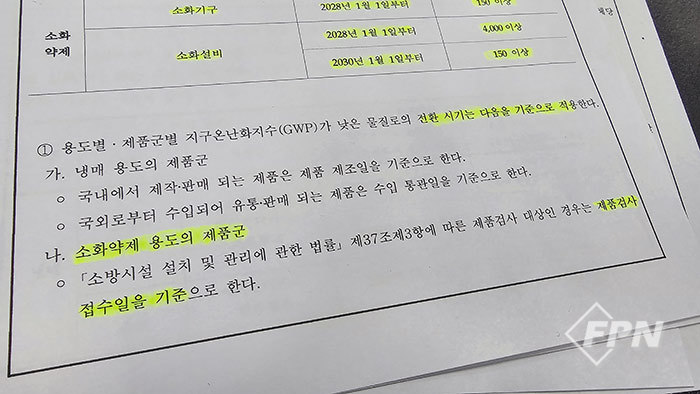 소화기구 2028년 1월 1일부터 150 이상
소화
약제
소화설비 2028년 1월 1일부터 4,000이상
2030년 1월 1일부터 150 이상
해당
① 용도별·제품군별 지구온난화지수(GWP)가 낮은 물질로의 전환 시기는 다음을 기준으로 적용한다.
가. 냉매 용도의 제품군
○ 국내에서 제작·판매 되는 제품은 제품 제조일을 기준으로 한다.
○ 국외로부터 수입되어 유통·판매 되는 제품은 수입 통관일을 기준으로 한다.
나. 소화약제 용도의 제품군
○ 「소방시설 설치 및 관리에 관한 법률」 제37조제3항에 따른 제품검사 대상인 경우는 제품검사
접수일을 기준으로 한다.
FPN